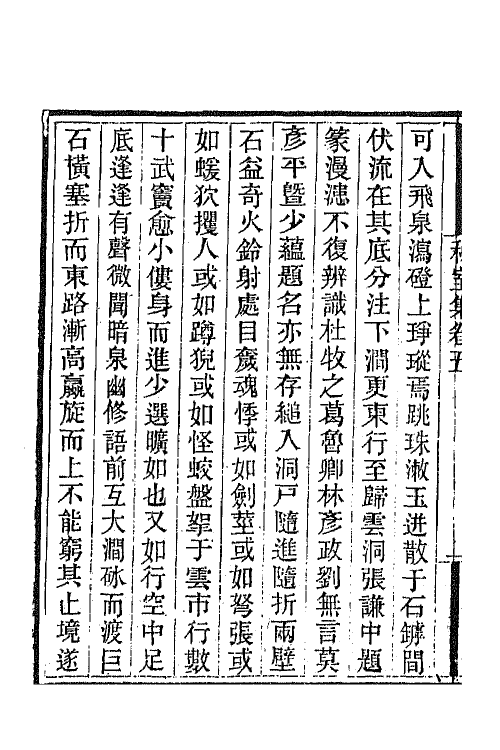 可入飛泉瀉磴上琤瑽焉跳珠漱玉迸散于石罅間
伏流在其底分注下澗更東行至歸雲洞張謙中題
篆漫漶不復辨識杜牧之葛魯卿林彥政劉無言莫
彥平曁少蘊題名亦無存縋入洞戸隨進隨折兩壁
石益奇火鈴射處目奫魂悸或如劍莖或如弩張或
如蝯狖攫人或如蹲猊或如怪蛟盤拏于雲市行數
十武竇愈小僂身而進少選曠如也又如行空中足
底逢逢有聲微聞暗泉幽修語前互大澗砅而渡巨
石橫塞折而東路漸高蠃旋而上不能窮其止境遂
集卷五